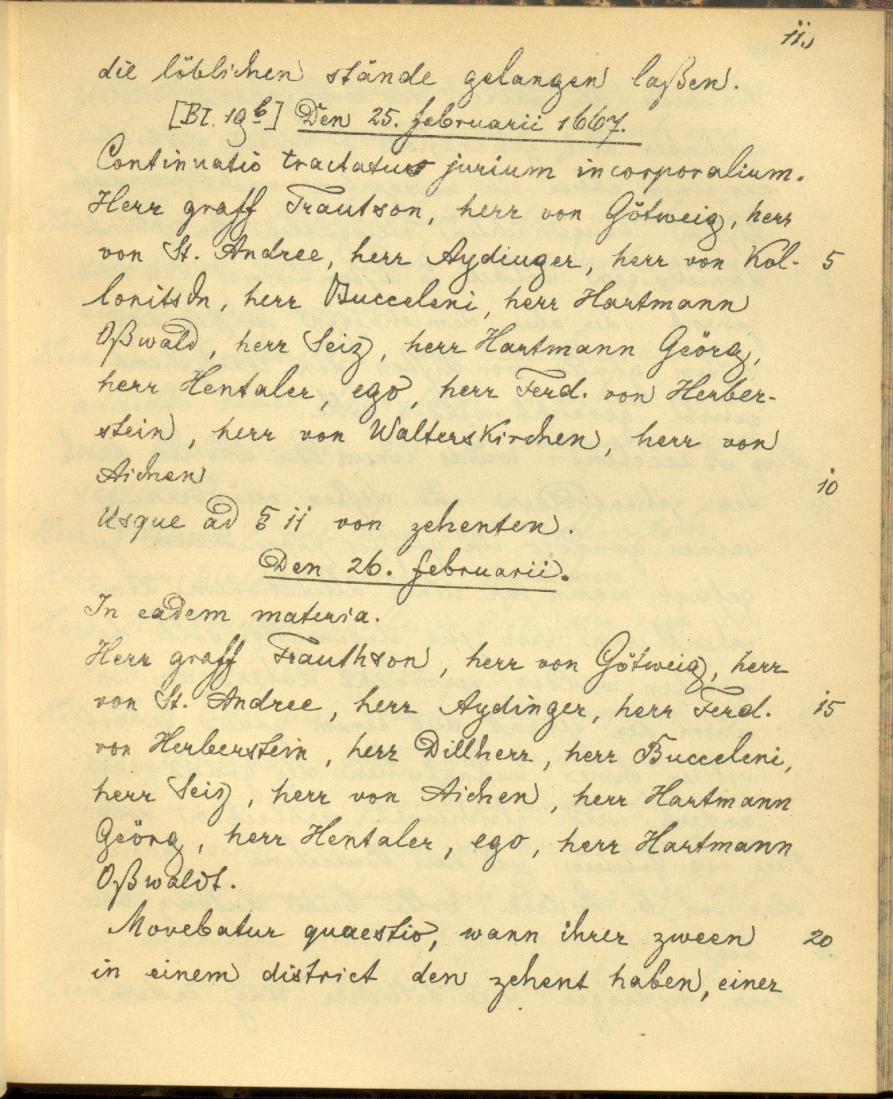 11.
die löblichen stände gelangen laßen.
[Bl. 19b] Den 25. februarii 1667.
Continuatio tractatus jurium incorporalium.
Herr graff Trautson, herr von Götweig, herr
von St. Andree, herr Aydinger, herr von Kol- 5
lonitsch, herr Bucceleni, herr Hartmann
Oßwald, herr Seiz, herr Hartmann Geörg,
herr Hentaler, ego, herr Ferd. von Herber-
stein, herr von Walterskirchen, herr von
Aichen 10
Usque ad § 11 von zehenten.
Den 26. februarii.
In eadem materia.
Herr graff Trauthson, herr von Götweig, herr
von St. Andree, herr Aydinger, herr Ferd. 15
von Herberstein, herr Dillherr, herr Bucceleni,
herr Seiz, herr von Aichen, herr Hartmann
Geörg, herr Hentaler, ego, herr Hartmann
Oßwaldt.
Movebatur quaestio, wann ihrer zween 20
in einem district den zehent haben, einer